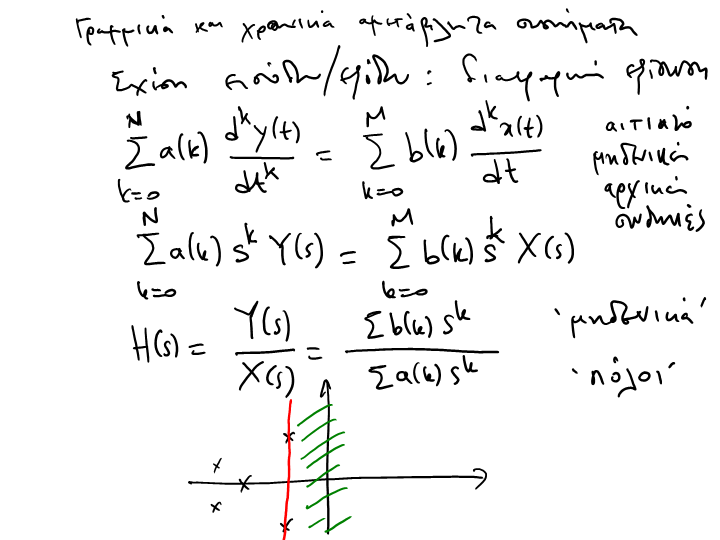 Γραμμικά και χρονικά αμετάβλητα συστήματα
Σχέση εισόδου/εξόδου : διαφορική εξίσωση
\sum_{k=0}^{N} a(k) \frac{d^k y(t)}{dt^k} = \sum_{k=0}^{M} b(k) \frac{d^k x(t)}{dt}
αιτιατό
μηδενικές
αρχικές
συνθήκες
\sum_{k=0}^{N} a(k) s^k Y(s) = \sum_{k=0}^{M} b(k) s^k X(s)
H(s) = \frac{Y(s)}{X(s)} = \frac{\sum b(k) s^k}{\sum a(k) s^k}
'μηδενικά'
'πόλοι'